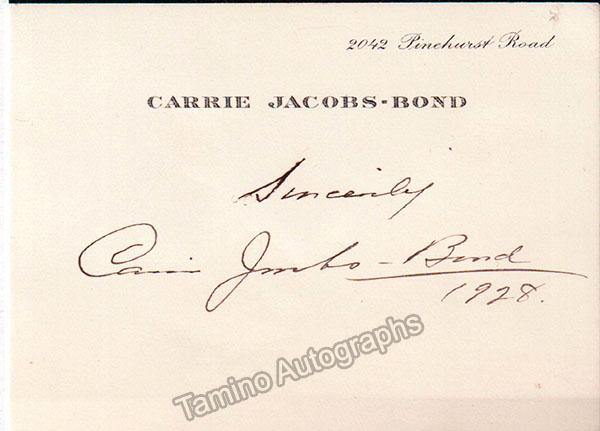 2042 Pinehurst Road
CARRIE JACOBS-BOND
Sincerely
Carrie Jacobs-Bond
1928.
Tamino Autographs